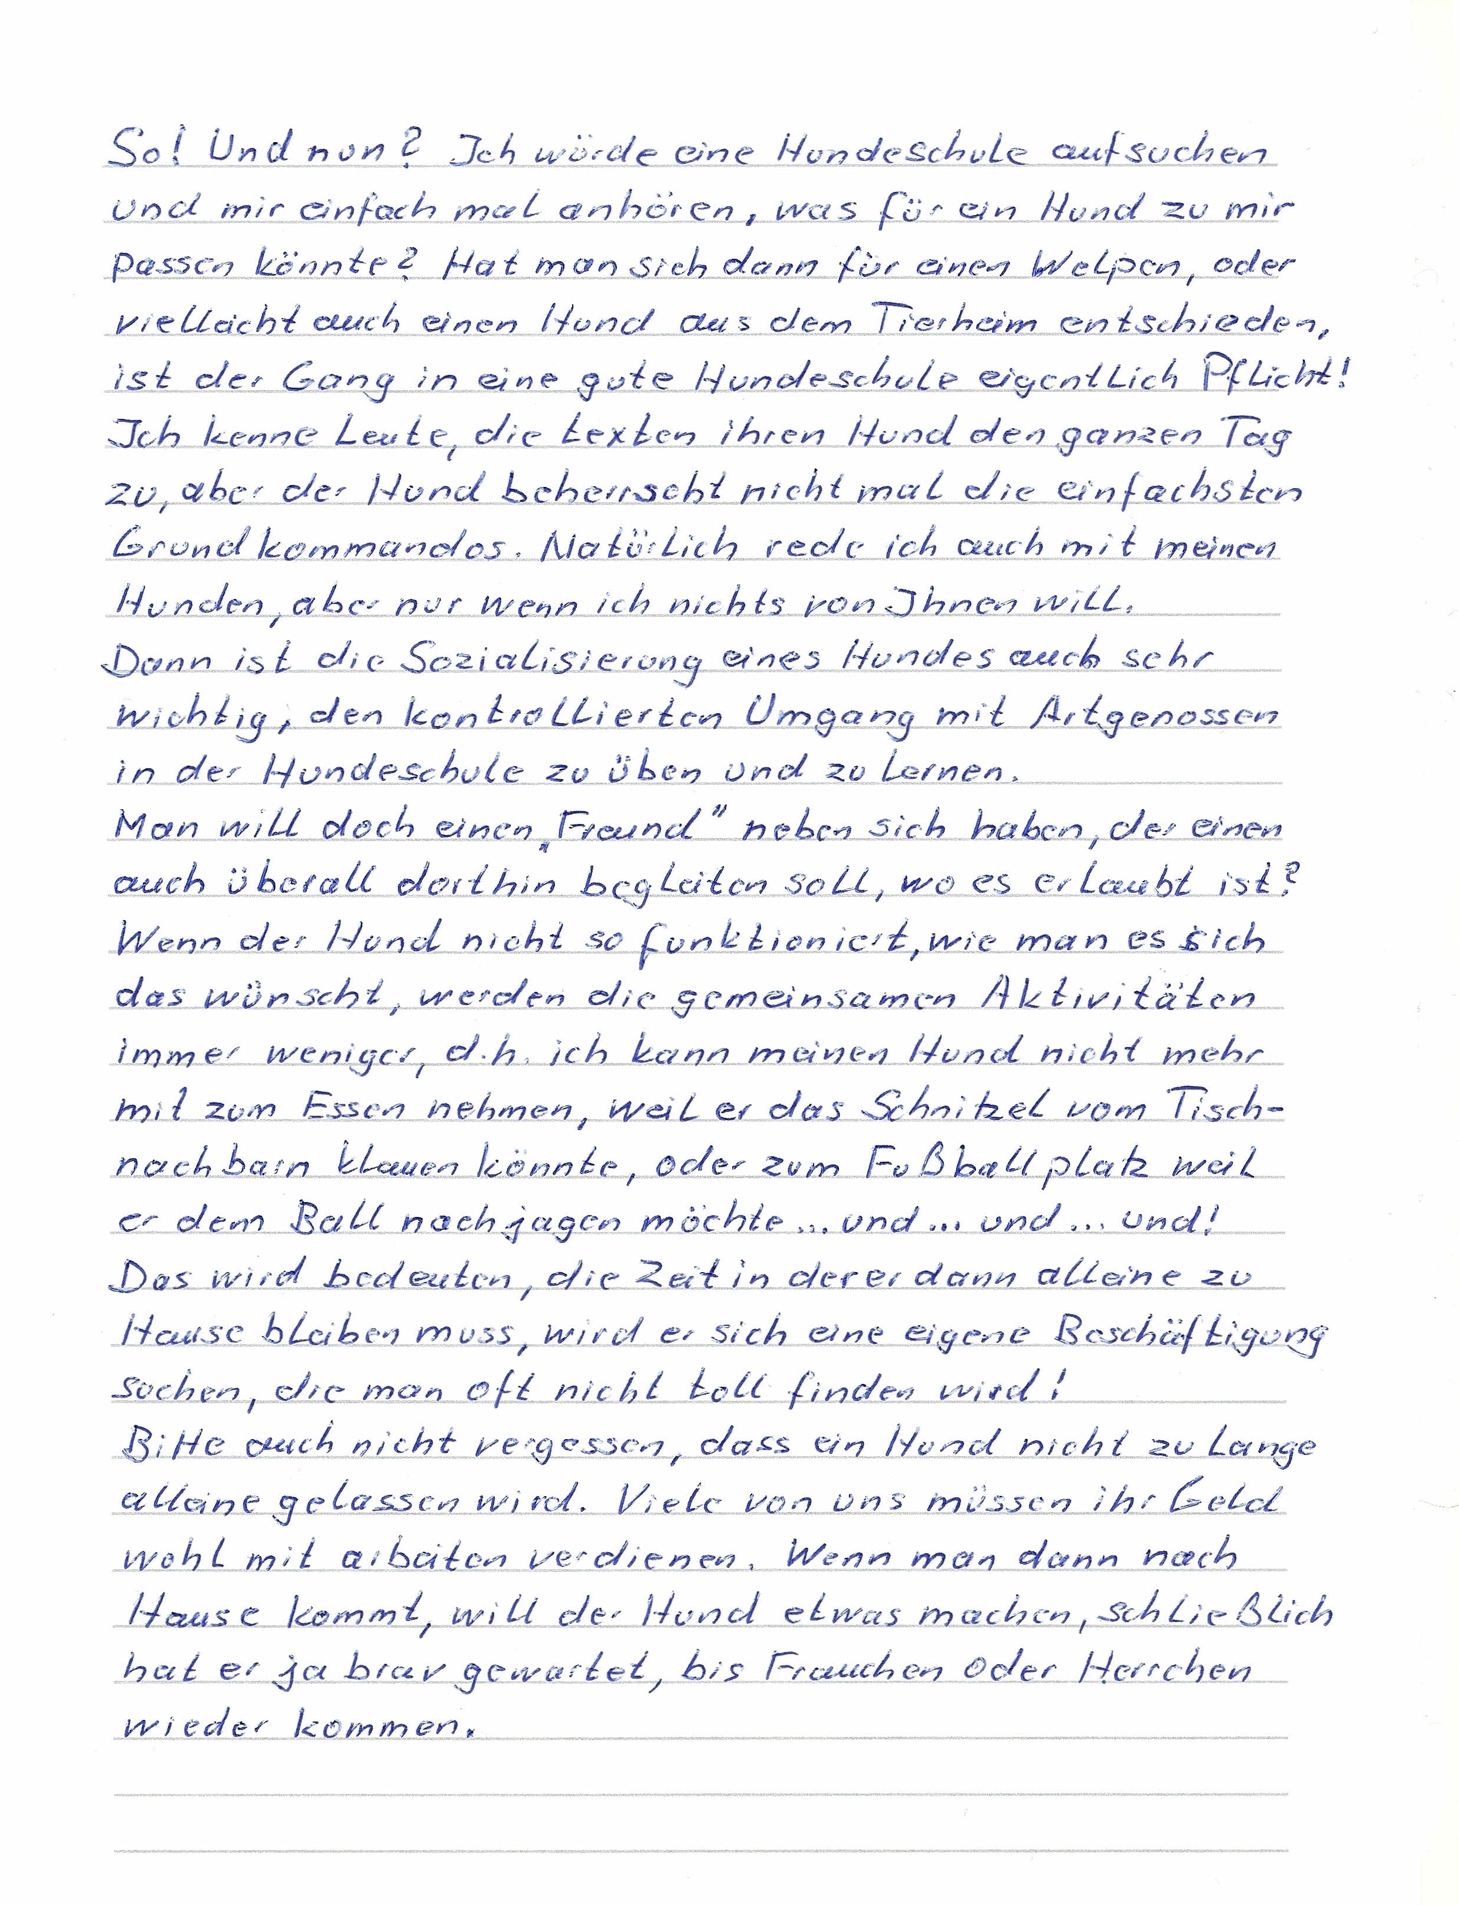 So! Und nun? Ich würde eine Hundeschule aufsuchen
und mir einfach mal anhören, was für ein Hund zu mir
passen könnte? Hat man sich dann für einen Welpen, oder
vielleicht auch einen Hund aus dem Tierheim entschieden,
ist der Gang in eine gute Hundeschule eigentlich Pflicht!
Ich kenne Leute, die texten ihren Hund den ganzen Tag
zu, aber der Hund beherrscht nicht mal die einfachsten
Grundkommandos. Natürlich rede ich auch mit meinen
Hunden, aber nur wenn ich nichts von Ihnen will.
Dann ist die Sozialisierung eines Hundes auch sehr
wichtig, den kontrollierten Umgang mit Artgenossen
in der Hundeschule zu üben und zu lernen.
Man will doch einen „Freund" neben sich haben, der einen
auch überall dorthin begleiten soll, wo es erlaubt ist?
Wenn der Hund nicht so funktioniert, wie man es sich
das wünscht, werden die gemeinsamen Aktivitäten
immer weniger, d.h. ich kann meinen Hund nicht mehr
mit zum Essen nehmen, weil er das Schnitzel vom Tisch-
nachbarn klauen könnte, oder zum Fußballplatz weil
er dem Ball nachjagen möchte ... und ... und ... und!
Das wird bedeuten, die Zeit in der er dann alleine zu
Hause bleiben muss, wird er sich eine eigene Beschäftigung
suchen, die man oft nicht toll finden wird!
Bitte auch nicht vergessen, dass ein Hund nicht zu lange
alleine gelassen wird. Viele von uns müssen ihr Geld
wohl mit arbeiten verdienen. Wenn man dann nach
Hause kommt, will der Hund etwas machen, schließlich
hat er ja brav gewartet, bis Frauchen oder Herrchen
wieder kommen.